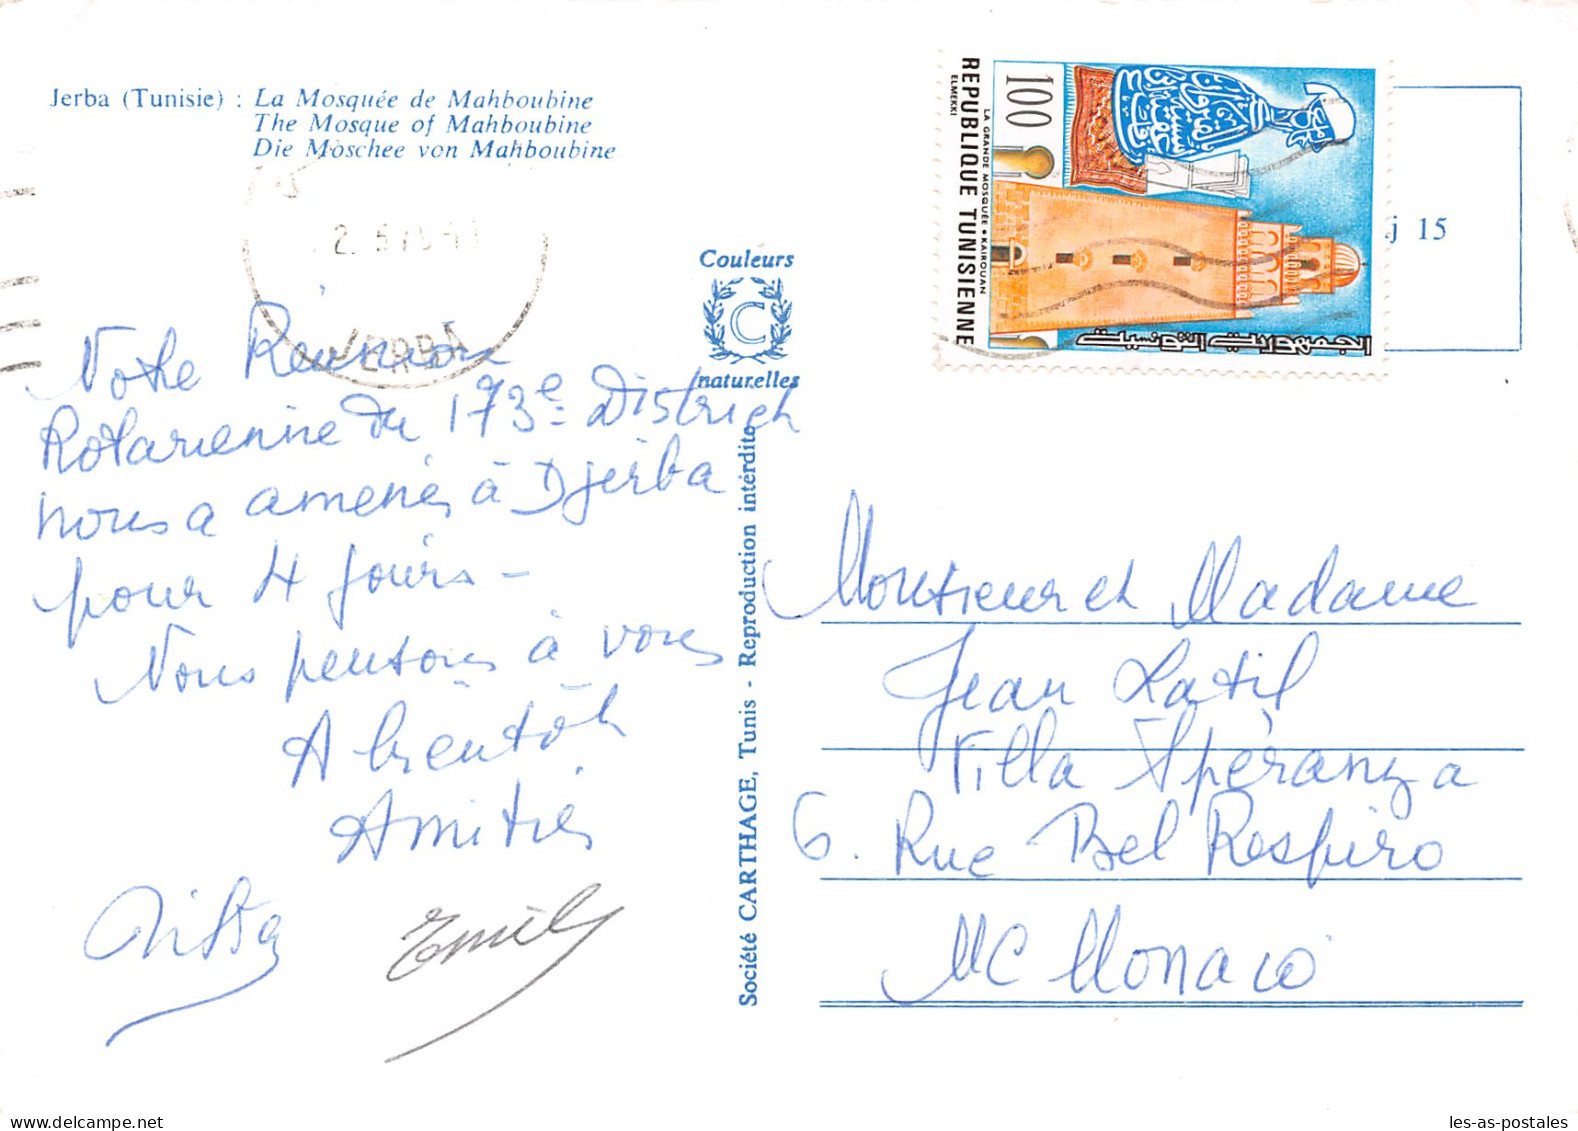 Jerba (Tunisie) : La Mosquée de Mahboubine
The Mosque of Mahboubine
Die Moschee von Mahboubine
JERBA
Notre Réunion
Rotarienne du 173e District
nous a amenés à Djerba
pour 4 jours -
Nous pensons à vous
A bientôt
Amitiés
Emily
Couleurs
C
naturelles
Société CARTHAGE, Tunis - Reproduction interdite
100
REPUBLIQUE TUNISIENNE
LA GRANDE MOSQUÉE • KAIROUAN
ELMEKKI
الجمهورية التونسية
j 15
Monsieur et Madame
Jean Latil
Villa Spéranza
6. Rue Bel Respiro
MC Monaco
les-as-postales